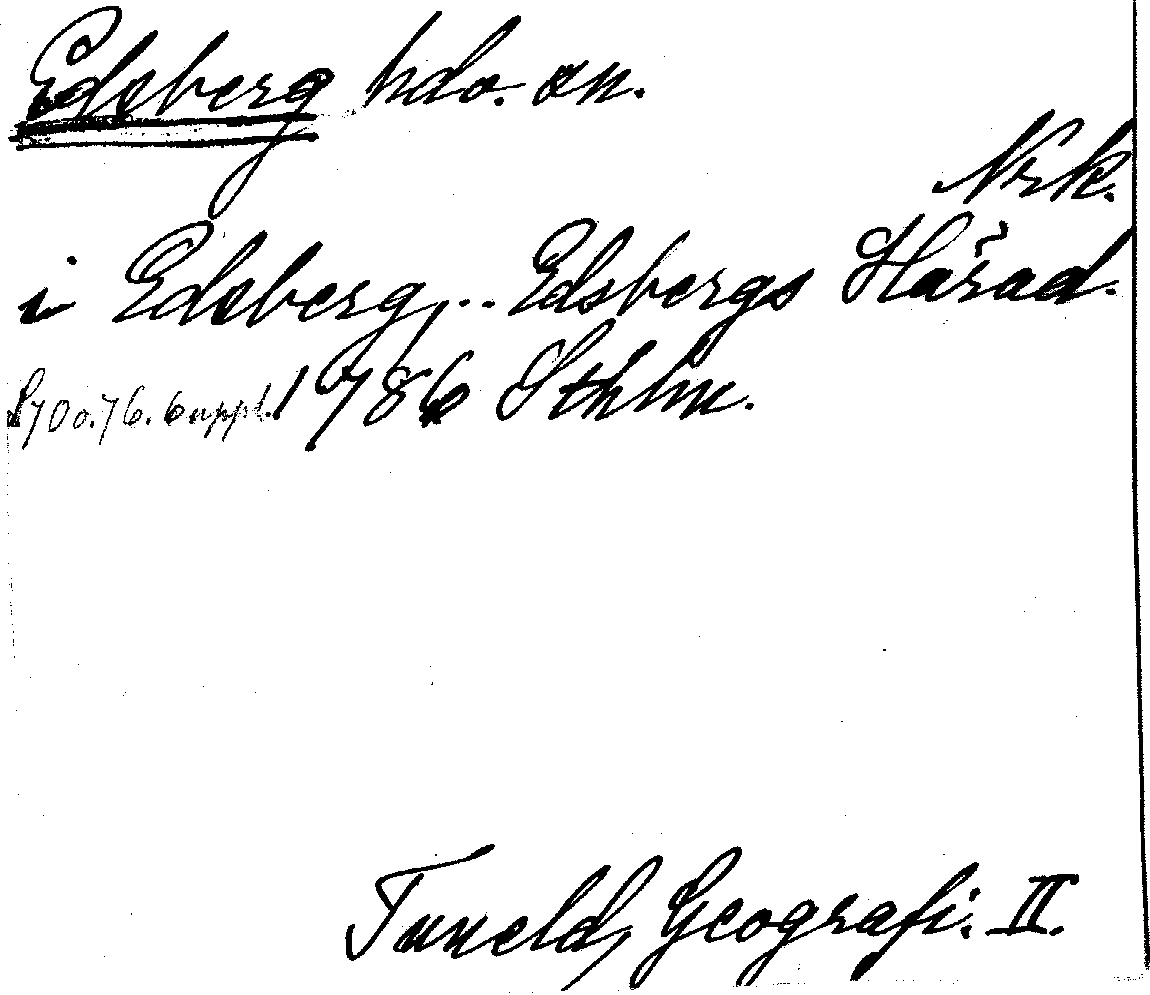 Edsberg hdo. sn.
Nrk.
i Edsberg,.. Edsbergs Härad.
S 70 o. 76. 6 uppl. 1786 Sthlm.
Tuneld, Geografi. II.